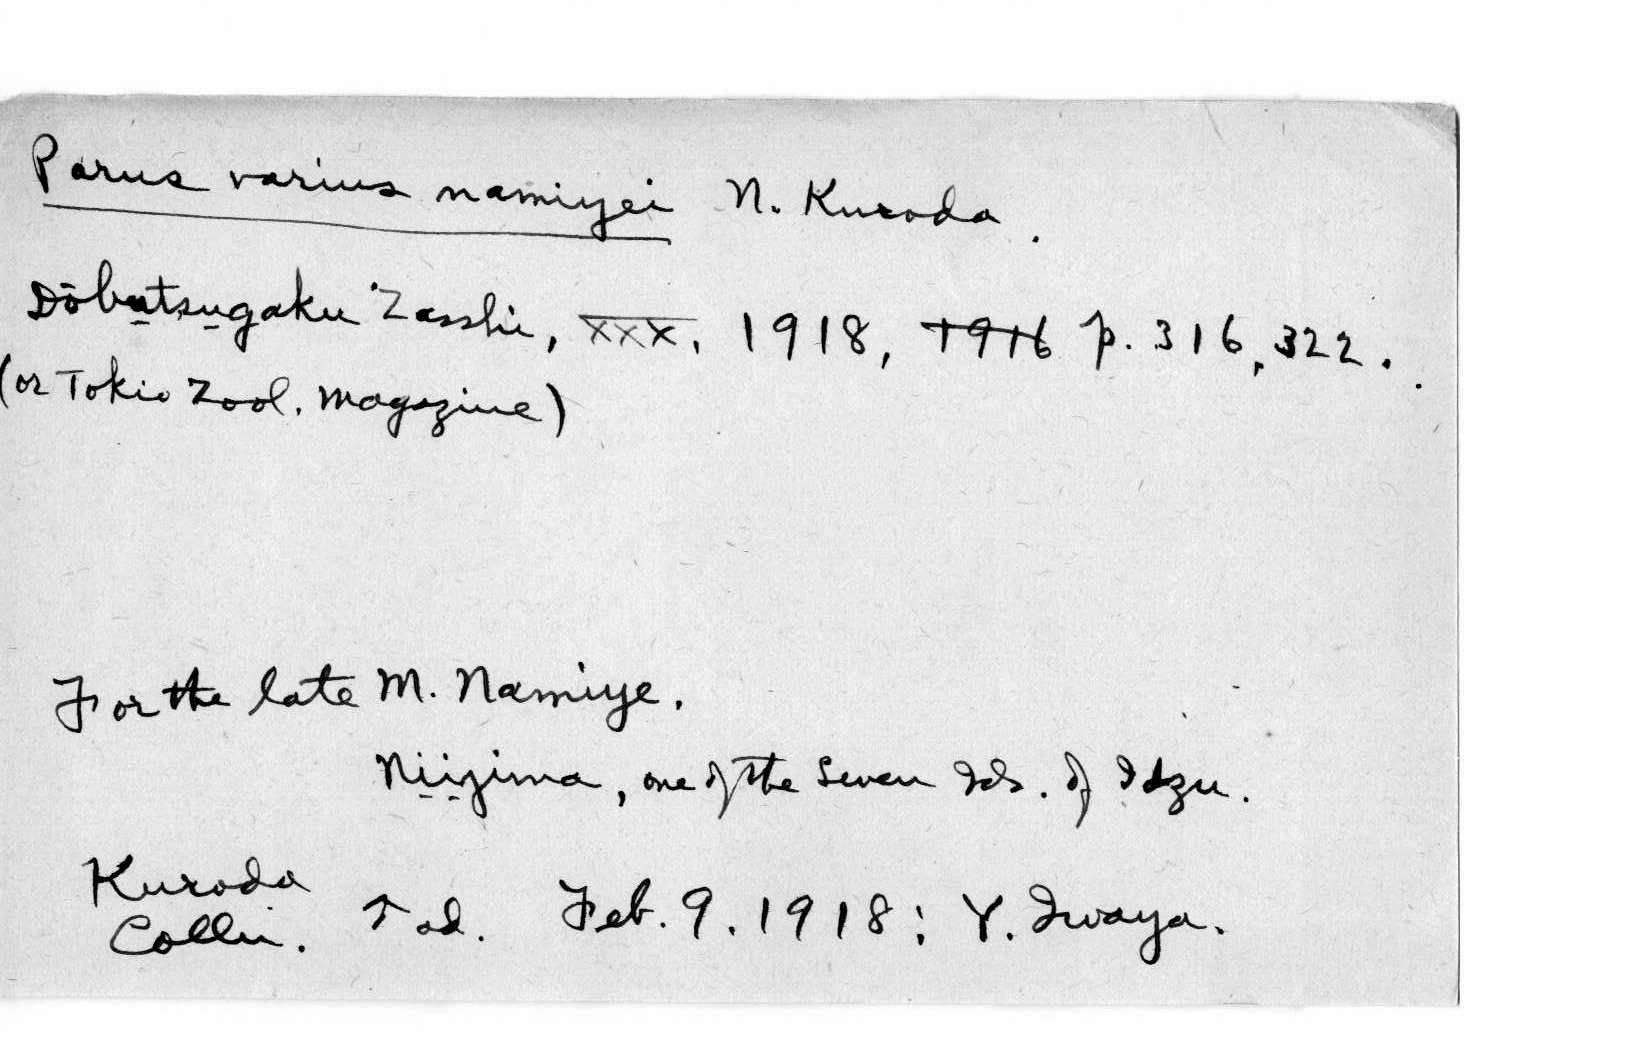 Parus varius namiyei N. Kuroda.
Dōbutsugaku Zasshi, XXX, 1918, 1916 p. 316, 322.
(or Tokio Zool. Magazine)
For the late M. Namiye.
Niijima, one of the Seven Ids. of Idzu.
Kuroda
Colln.
ad. Feb. 9. 1918; Y. Iwaya.